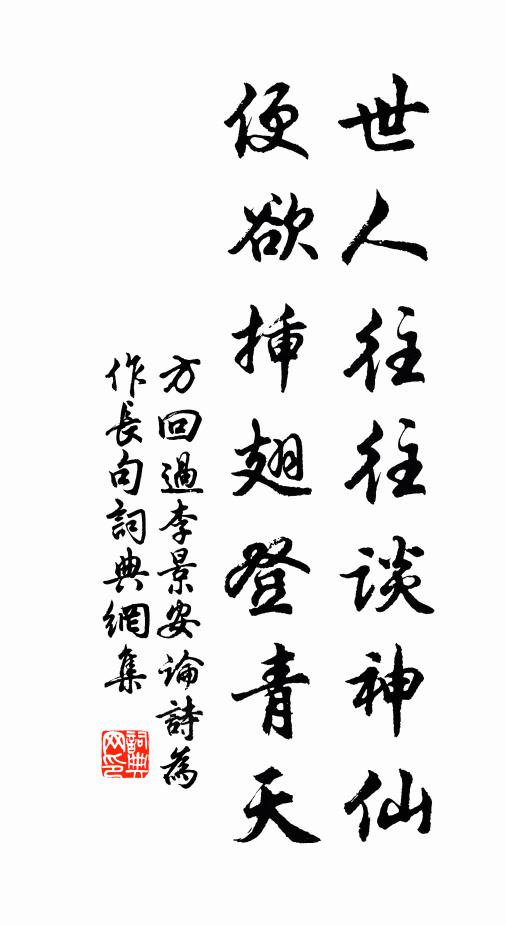 世人往往談神仙
便欲揷翅登青天
方回過李景安論詩為
作長句詞典網集
詞典
网印